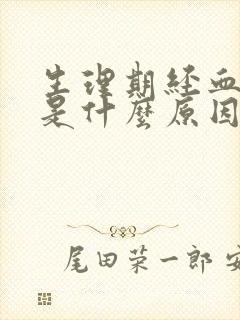 生理期経血
是什麼原因
尾田荣一郎 安